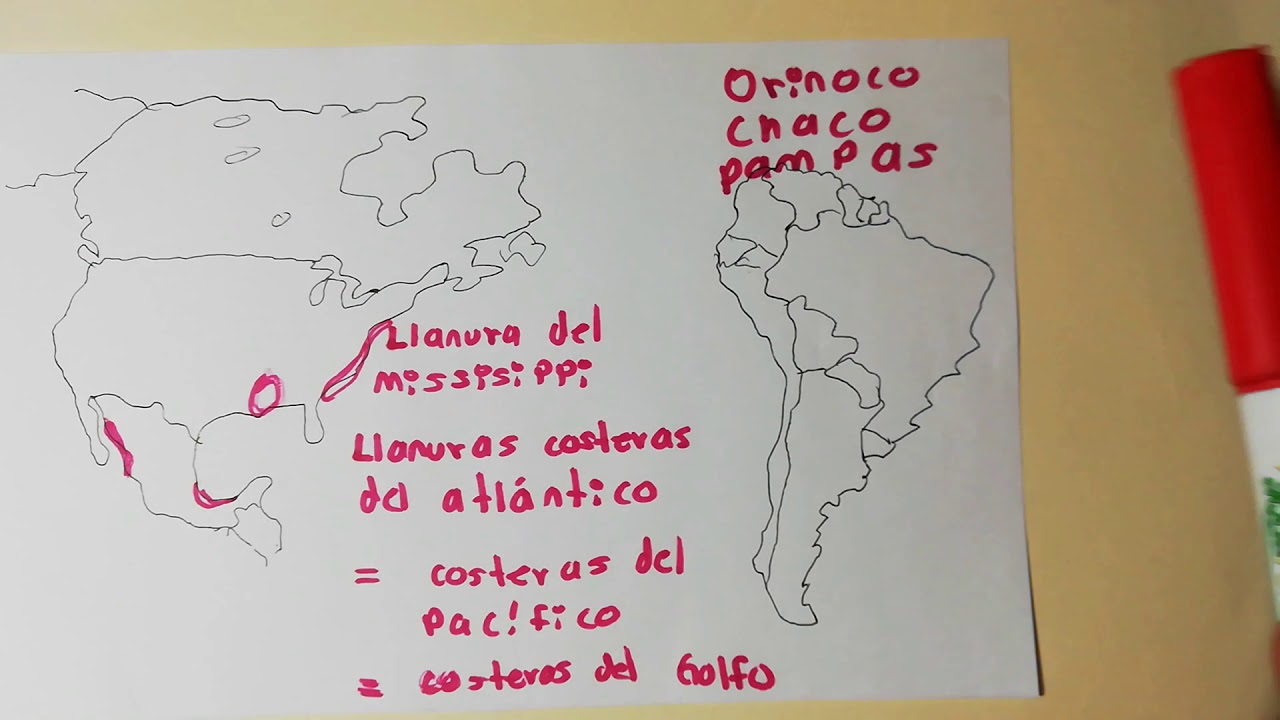 Orinoco
Chaco
pampas
Llanura del
mississippi
Llanuras costeras
del atlántico
= costeras del
pacífico
= costeras del Golfo